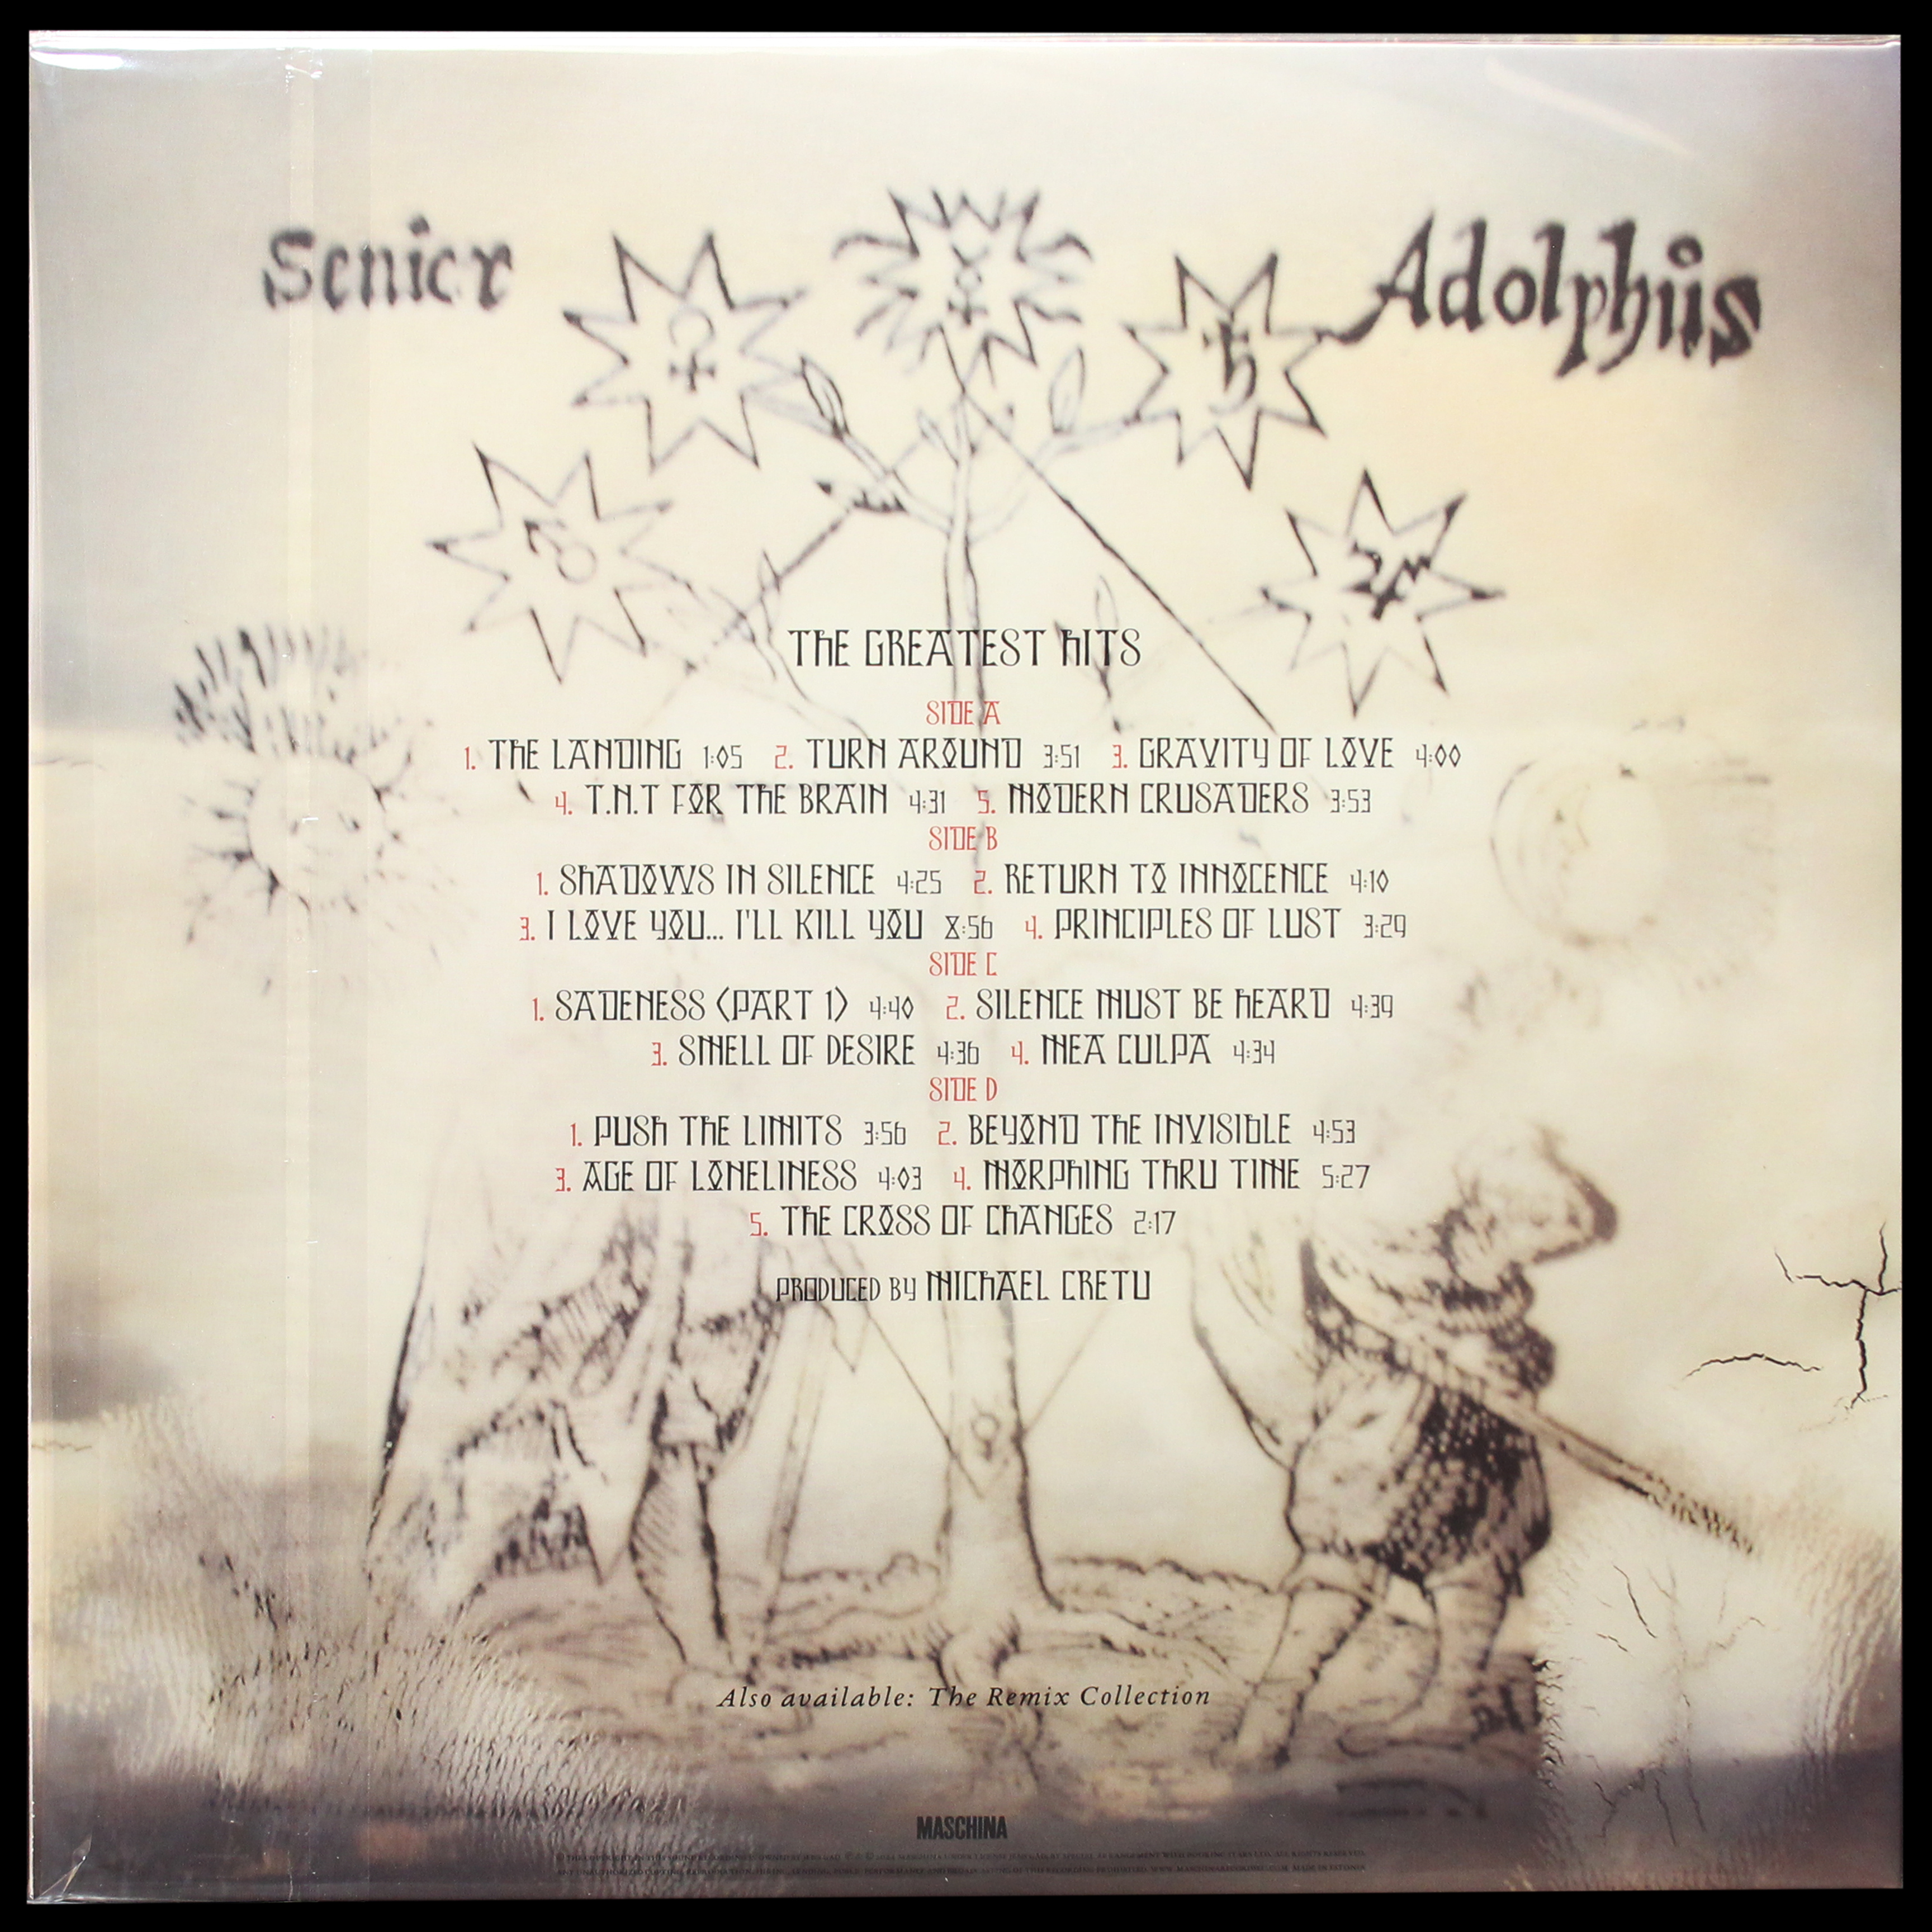 Senior
Adolphus
THE GREATEST HITS
SIDE A
1. THE LANDING 1:05 2. TURN AROUND 3:51 3. GRAVITY OF LOVE 4:00
4. T.N.T FOR THE BRAIN 4:31 5. MODERN CRUSADERS 3:53
SIDE B
1. SHADOWS IN SILENCE 4:25 2. RETURN TO INNOCENCE 4:10
3. I LOVE YOU... I'LL KILL YOU 8:56 4. PRINCIPLES OF LUST 3:29
SIDE C
1. SADENESS (PART 1) 4:40 2. SILENCE MUST BE HEARD 4:39
3. SMELL OF DESIRE 4:36 4. MEA CULPA 4:34
SIDE D
1. PUSH THE LIMITS 3:56 2. BEYOND THE INVISIBLE 4:53
3. AGE OF LONELINESS 4:03 4. MORPHING THRU TIME 5:27
5. THE CROSS OF CHANGES 2:17
PRODUCED BY MICHAEL CRETU
Also available: The Remix Collection
MASCHINA